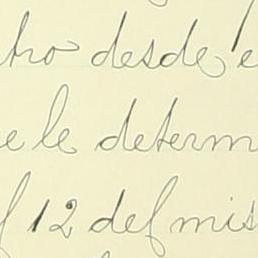 ho desde e
e le determ
f 12 def mis